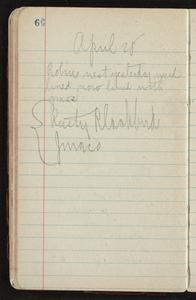 59
April 28
Robins nest yesterday mud
lined now lined with
grass
Rusty Blackbirds
Juncos